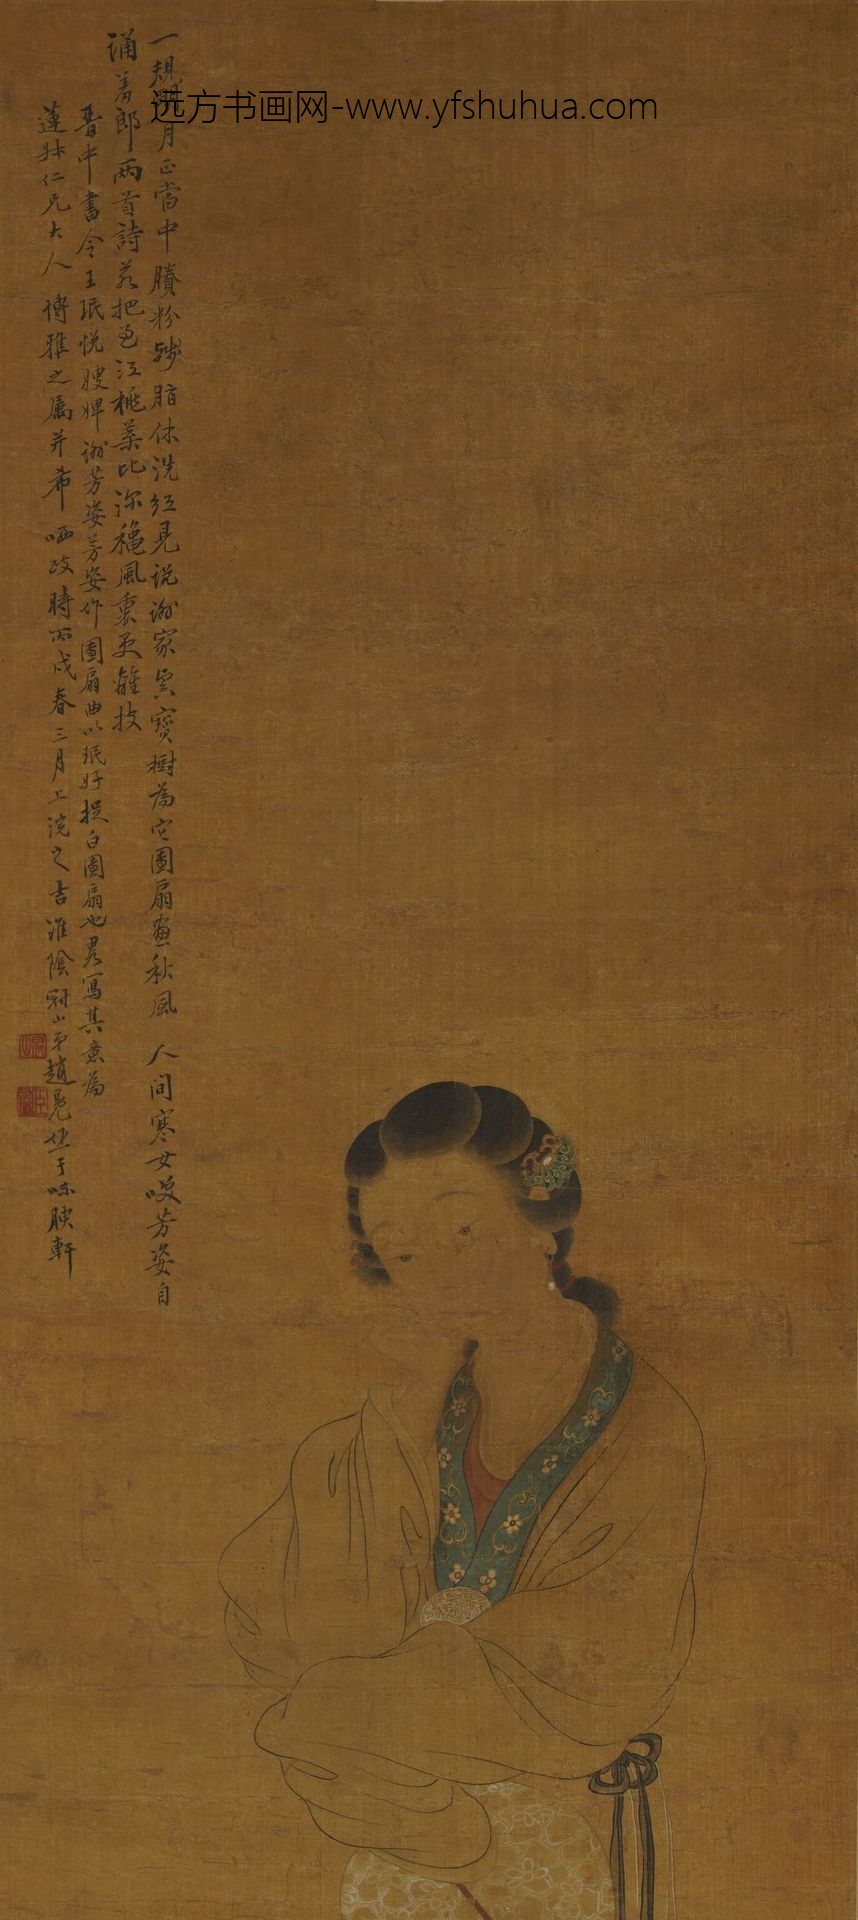 远方书画网-www.yfshuhua.com
一規明月正當中賸粉殘脂休洗紅見說謝家寶樹為它團扇畫秋風 人間寒女嘆芳姿自
誦羊郎兩首詩若把江桃葉比深風裏更難持
晋中書令王珉悅嫂婢謝芳姿芳姿作團扇曲以珉好捉白團扇也畧寫其意為
蓮妹仁兄大人 博雅之屬并希 哂政時丙戌春三月上浣之吉淮陰冠山弟趙于味腴軒